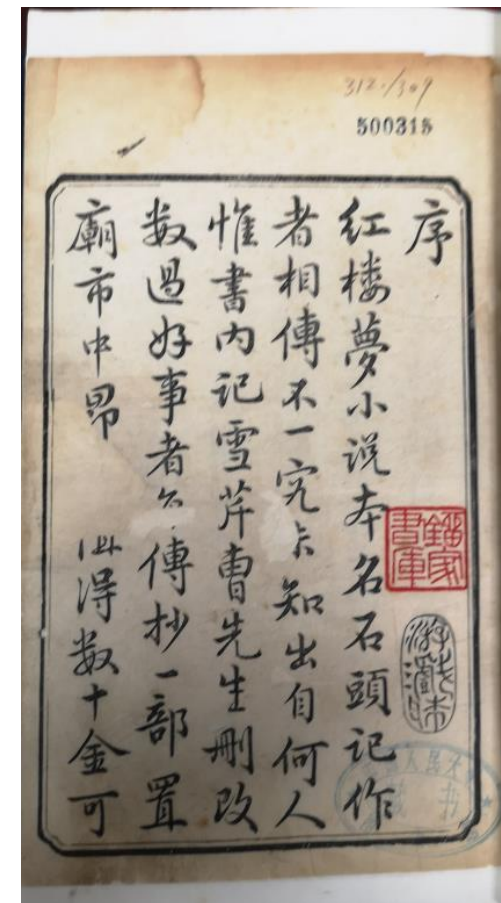 312./309
500315
序
红楼夢小说本名石頭記作
者相傳不一究知出自何人
惟書内记雪芹曹先生删改
数過好事者傳抄一部置
廟市中昂得数十金可